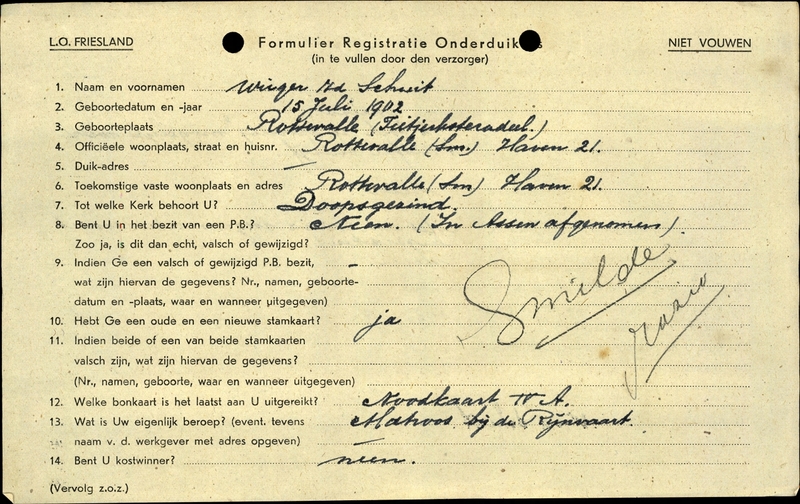 L.O. FRIESLAND
Formulier Registratie Onderduikers
NIET VOUWEN
(in te vullen door den verzorger)
1. Naam en voornamen Winger v/d Schuit
2. Geboortedatum en -jaar 15 Juli 1902
3. Geboorteplaats Rottevalle (Tietjerksteradeel.)
4. Officiëele woonplaats, straat en huisnr. Rottevalle (Sm.) Haven 21.
5. Duik-adres —
6. Toekomstige vaste woonplaats en adres Rottevalle (Sm) Haven 21.
7. Tot welke Kerk behoort U? Doopsgezind.
8. Bent U in het bezit van een P.B.? Neen. (In Assen afgenomen)
Zoo ja, is dit dan echt, valsch of gewijzigd?
9. Indien Ge een valsch of gewijzigd P.B. bezit, –
wat zijn hiervan de gegevens? Nr., namen, geboorte-
datum en -plaats, waar en wanneer uitgegeven)
Smilde
10. Hebt Ge een oude en een nieuwe stamkaart? ja
11. Indien beide of een van beide stamkaarten
valsch zijn, wat zijn hiervan de gegevens?
(Nr., namen, geboorte, waar en wanneer uitgegeven)
12. Welke bonkaart is het laatst aan U uitgereikt? Noodkaart W A.
13. Wat is Uw eigenlijk beroep? (event. tevens Matroos bij de Rijnvaart.
naam v. d. werkgever met adres opgeven) —
14. Bent U kostwinner? neen.
(Vervolg z.o.z.)